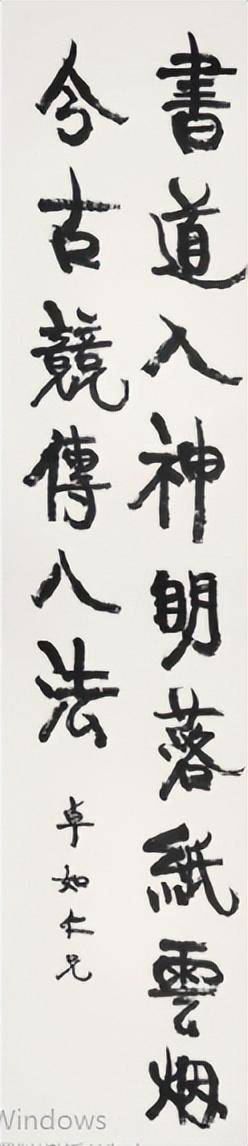 書道入神明落紙雲烟
今古競傳八法
卓如仁兄
Windows